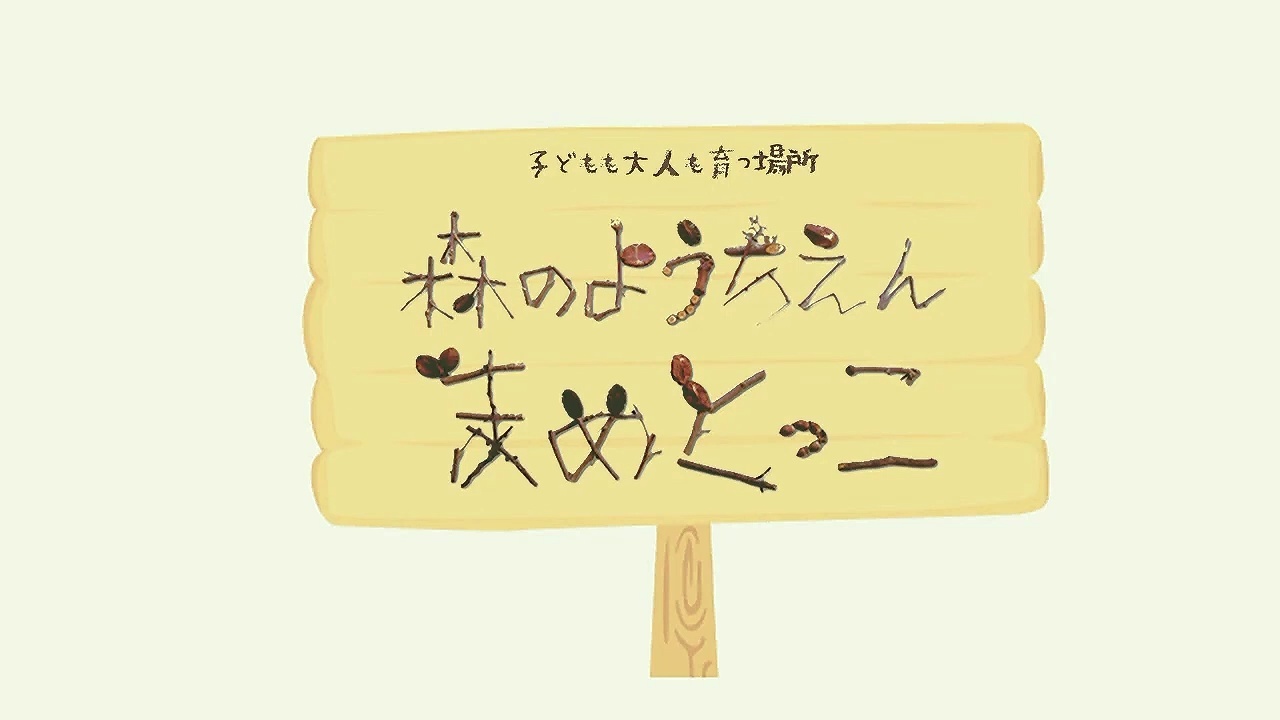 子どもも大人も育つ場所
森のようちえん
まめとっこ